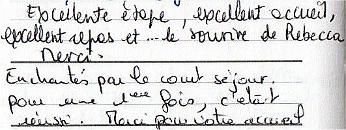 Excellente étape, excellent accueil,
excellent repas et... le sourire de Rebecca
Merci.
Enchantés par le court séjour.
pour une 1ère fois, c'était
réussi. Merci pour votre accueil